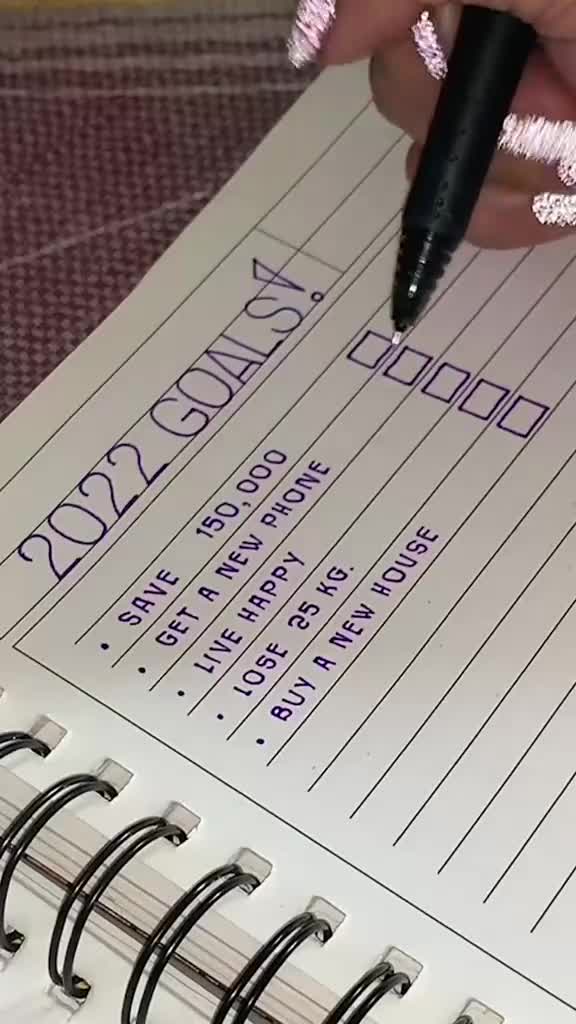 2022 GOALS!
• SAVE 150,000
• GET A NEW PHONE
• LIVE HAPPY
• LOSE 25 KG.
• BUY A NEW HOUSE